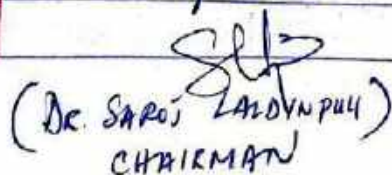 (DR. SAROJ LALDINPUII)
CHAIRMAN